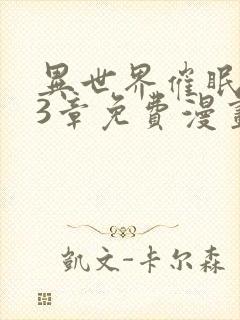 異世界催眠
3章免費漫畫
凱文-卡尔森